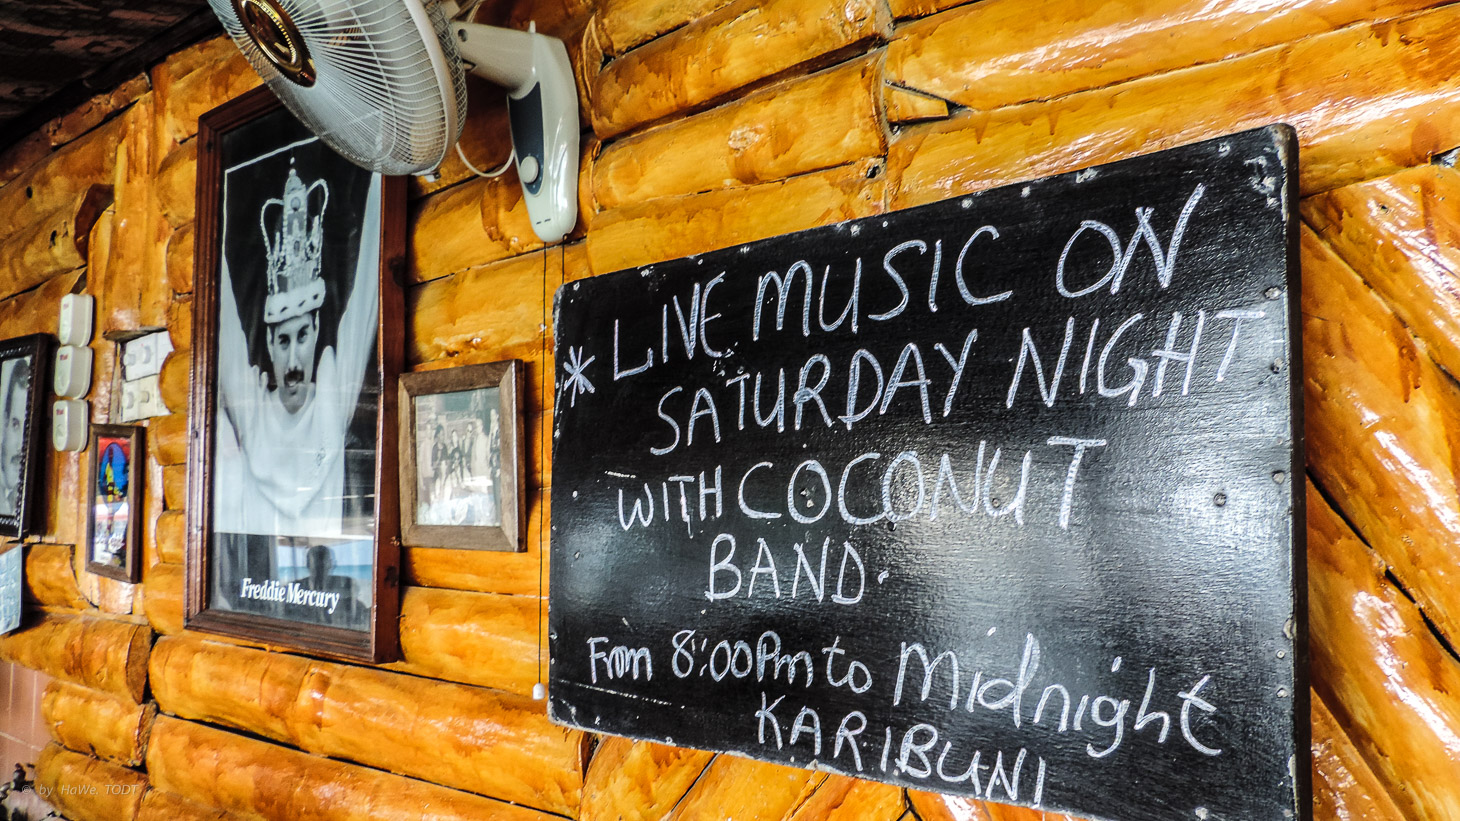 * LIVE MUSIC ON
SATURDAY NIGHT
WITH COCONUT
BAND.
From 8:00Pm to Midnight
KARIBUNI
Freddie Mercury
© by HaWe. TODT